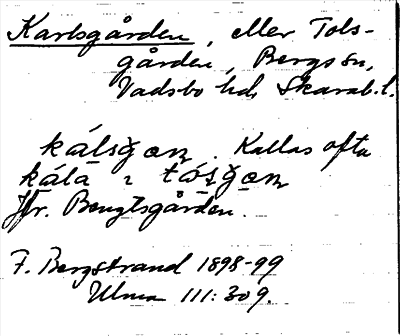 Karlsgården, eller Tols-
gården, Bergs sn,
Vadsbo hd, Skarab. l.
kálsgæn. Kallas ofta
kála i tásgæn
Jfr. Bengtsgården.
F. Bergstrand 1898-99
Ulma 111:309.